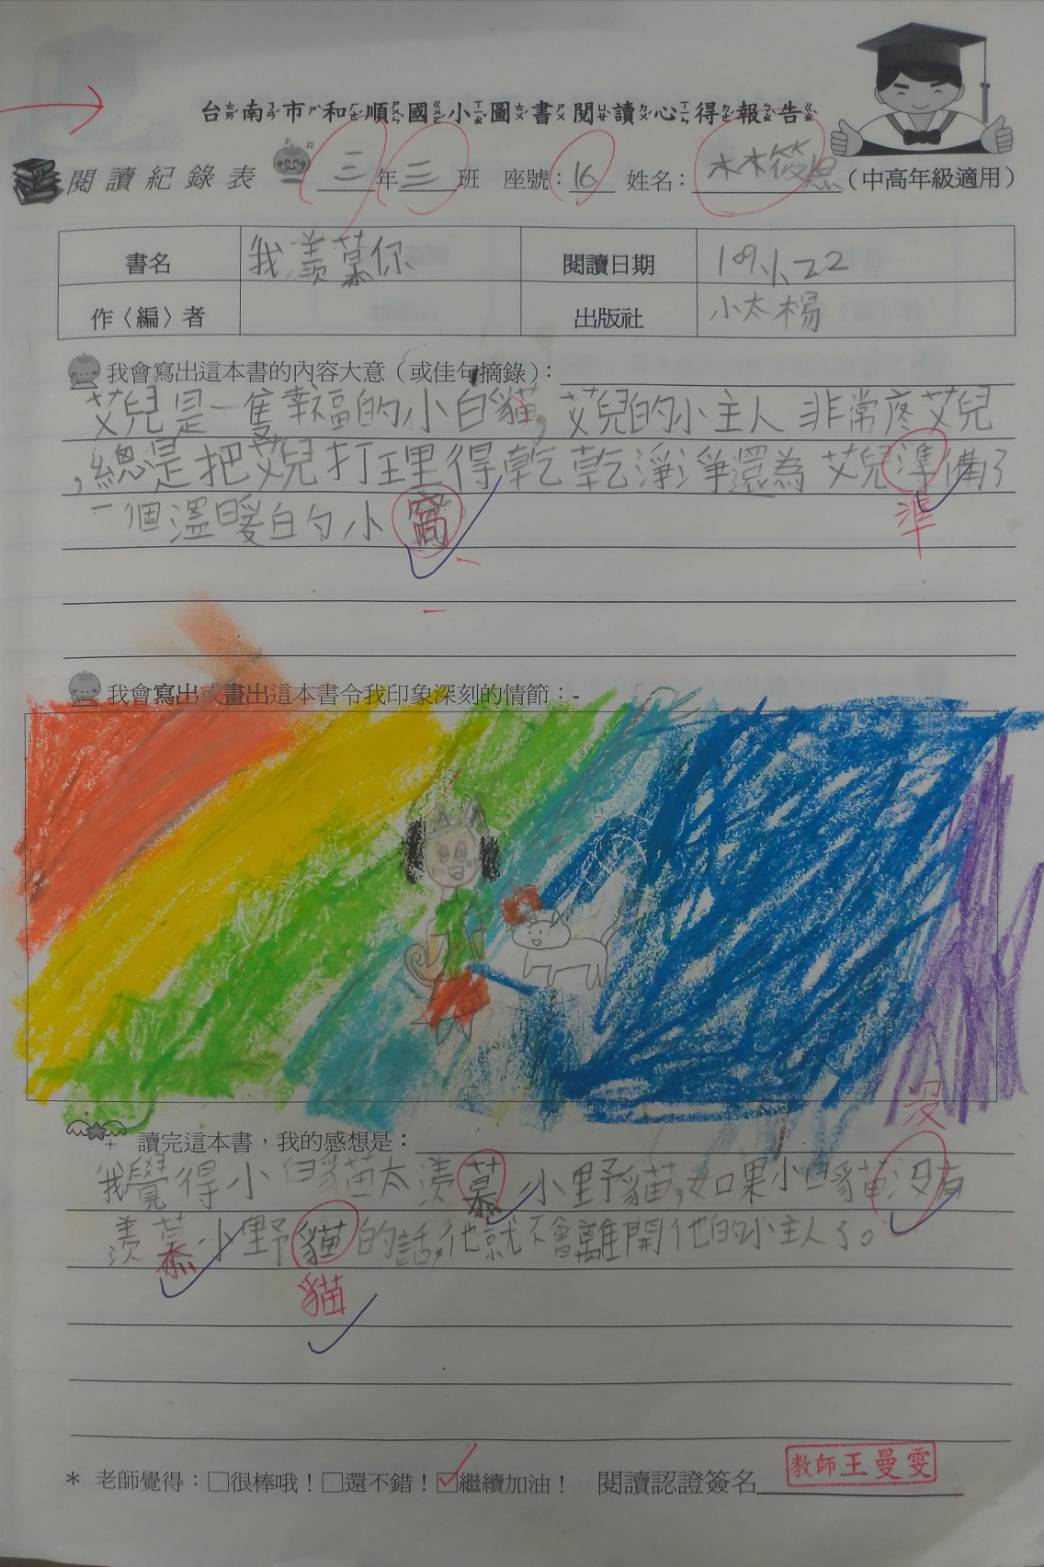 台南市和順國小圖書閱讀心得報告
閱讀紀錄表 三年三班 座號:16 姓名:林筱恩(中高年級適用)
書名 我羨慕你 閱讀日期 109.1.22
作〈編〉者 出版社 小太楊
我會寫出這本書的內容大意(或佳句摘錄):
艾兒是一隻幸福的小白貓,艾兒的小主人非常疼艾兒
,總是把艾兒打理得乾乾淨淨還為艾兒準備了
一個溫暖的小窩
準
我會寫出或畫出這本書令我印象深刻的情節:
沒
讀完這本書,我的感想是:
我覺得小白貓太羨慕小野貓,如果小白貓沒有
羨慕小野貓的話,他就不會離開他的小主人了。
貓
* 老師覺得:□很棒哦!□還不錯!☑繼續加油! 閱讀認證簽名
教師王曼雯